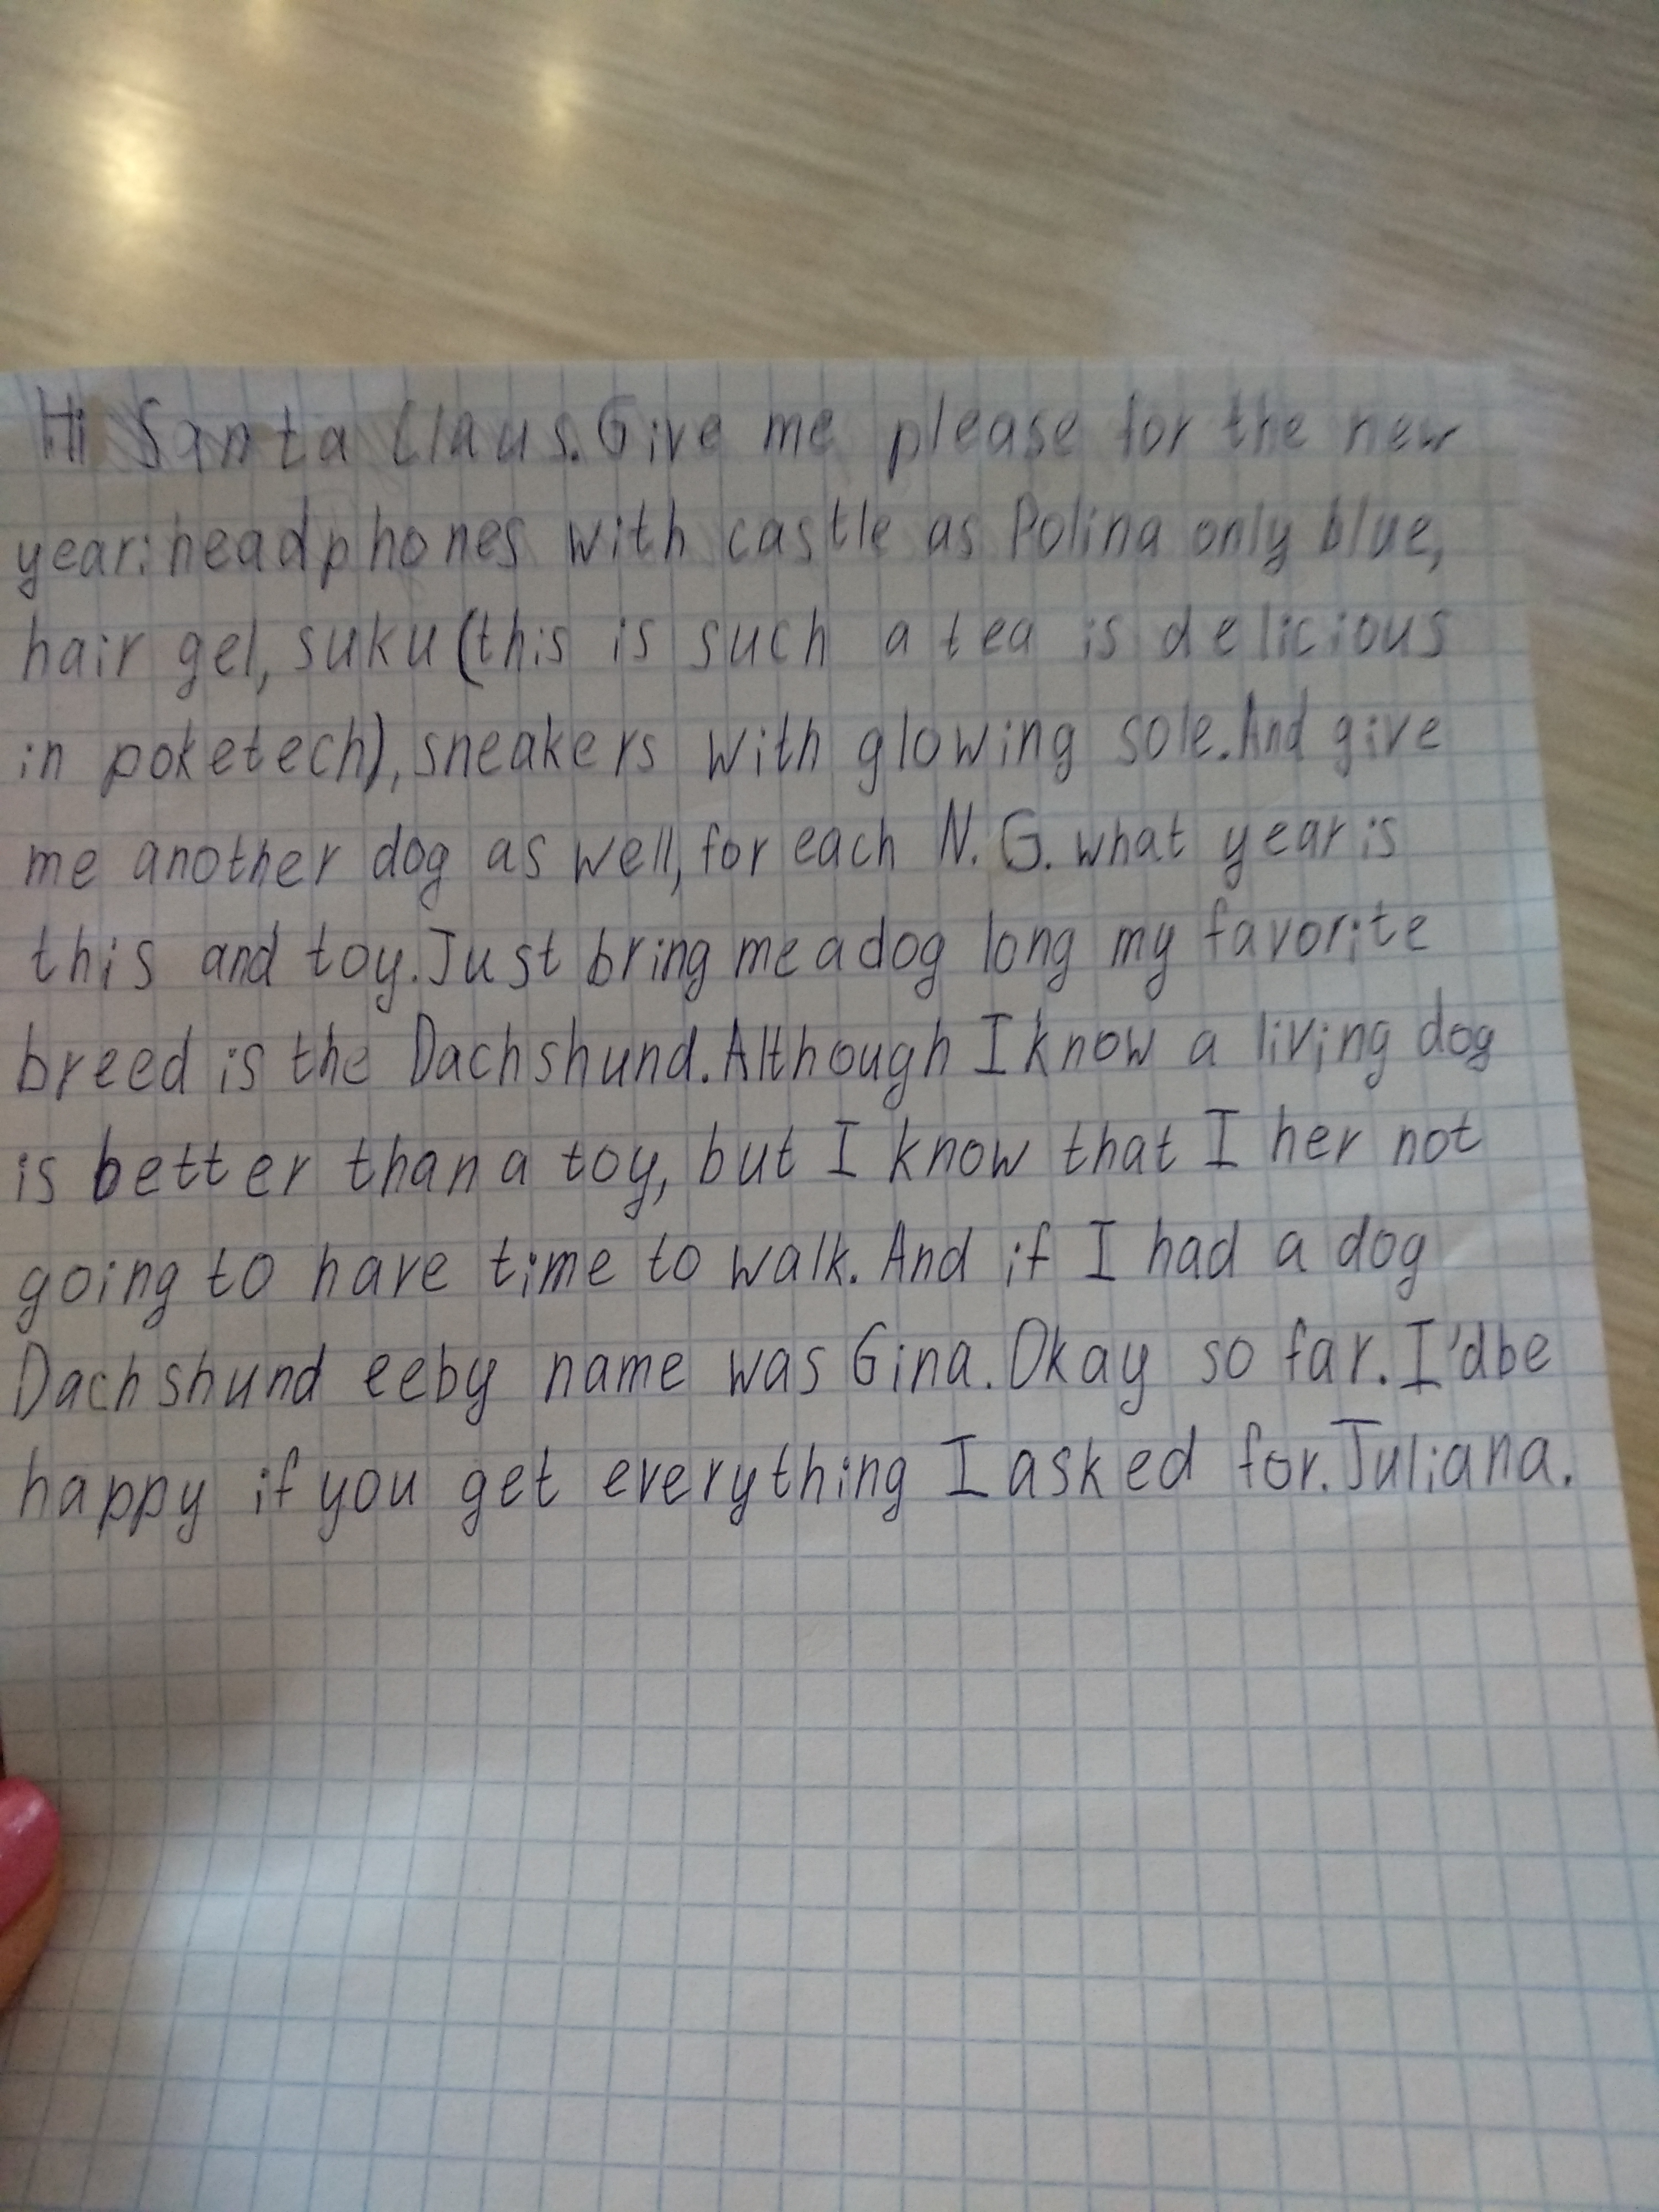 Hi Santa Claus. Give me please for the new
year: headphones with castle as Polina only blue,
hair gel, suku (this is such a tea is delicious
in poketech), sneakers with glowing sole. And give
me another dog as well, for each N. G. what year is
this and toy. Just bring me a dog long my favorite
breed is the Dachshund. Although I know a living dog
is better than a toy, but I know that I her not
going to have time to walk. And if I had a dog
Dachshund eeby name was Gina. Okay so far. I'd be
happy if you get everything I asked for. Juliana.